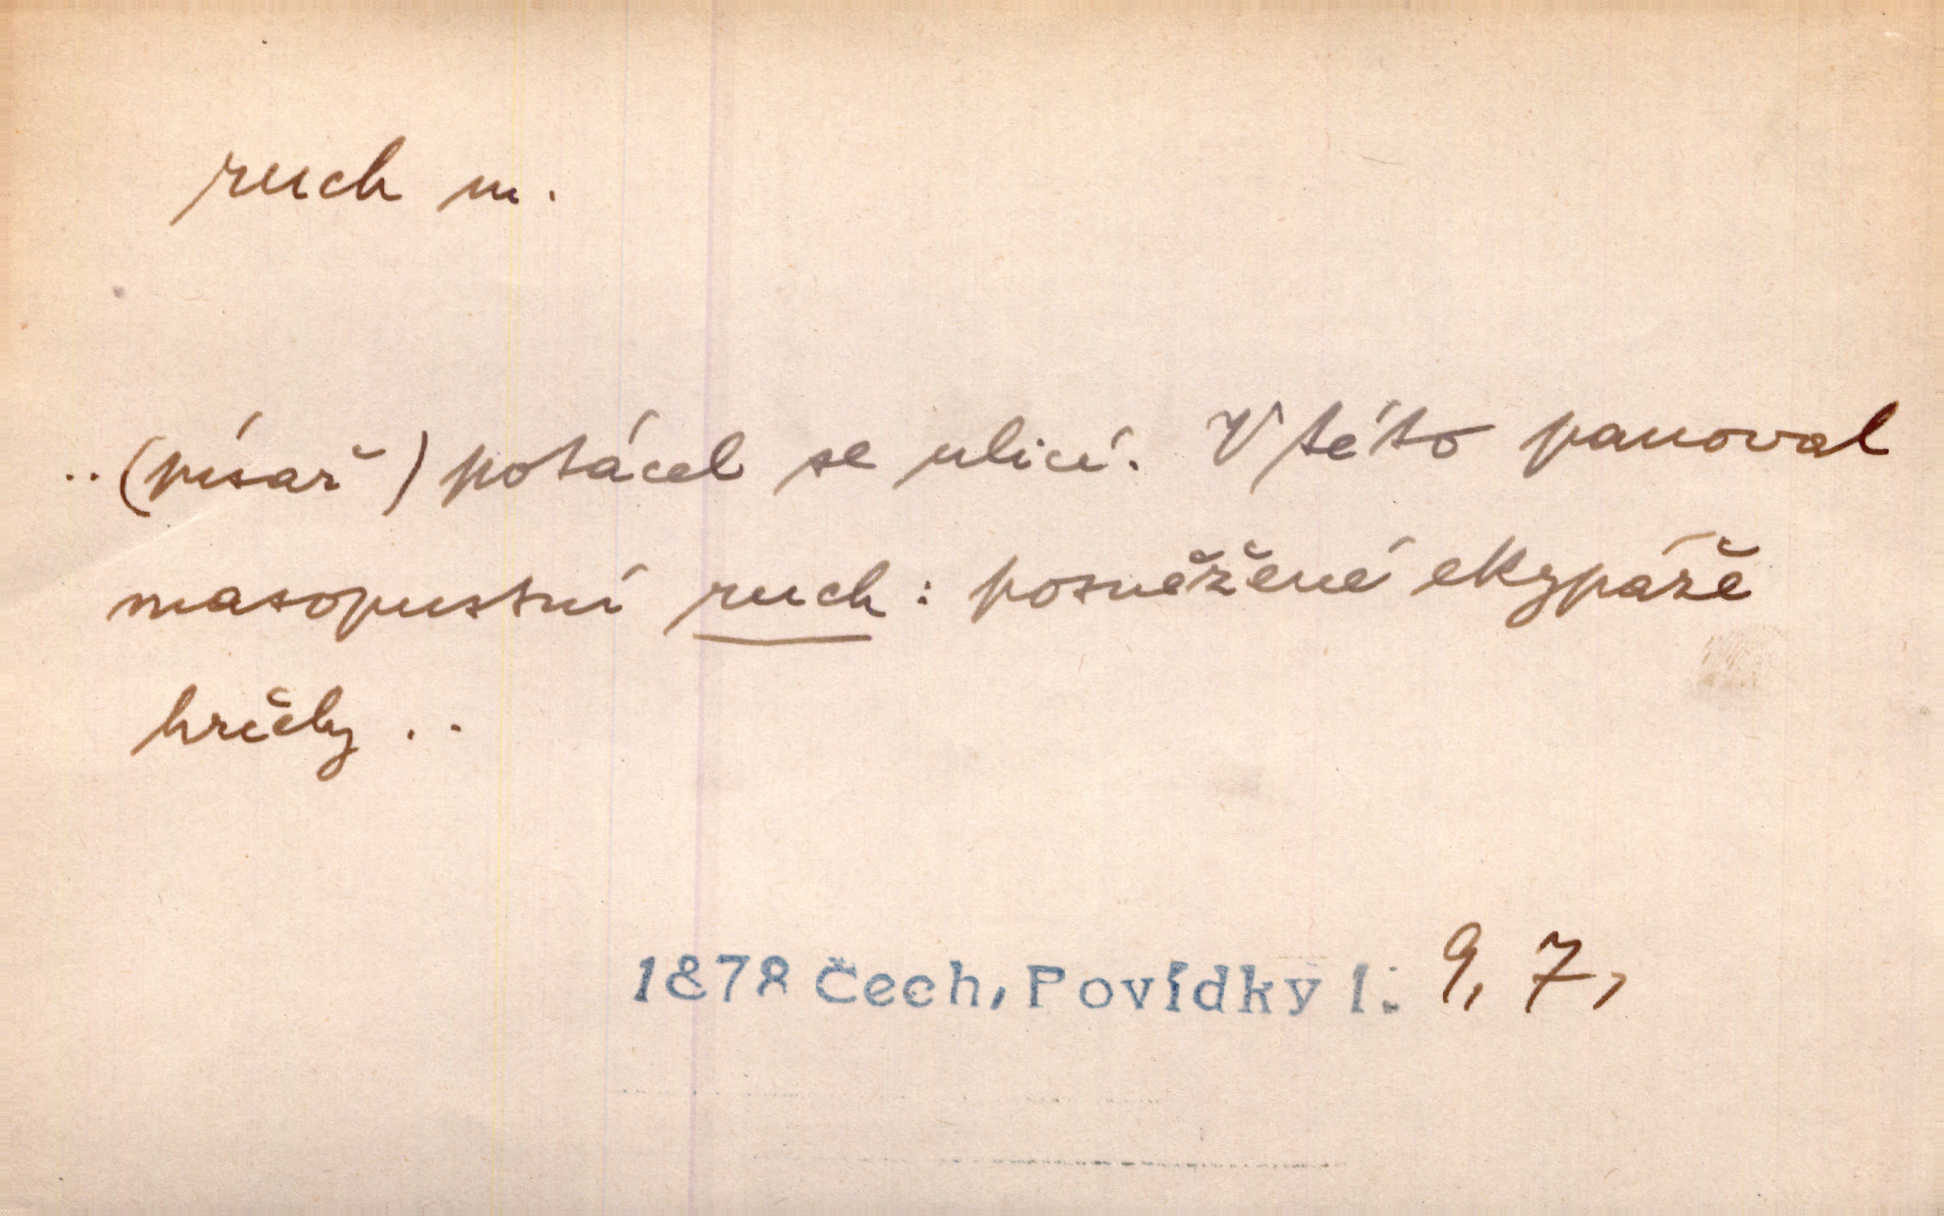 ruch m.
..(písař) potácel se ulicí. V této panoval
masopustní ruch: posněžené ekypáže
hrčely ..
1878 Čech, Povídky I. 9, 7,